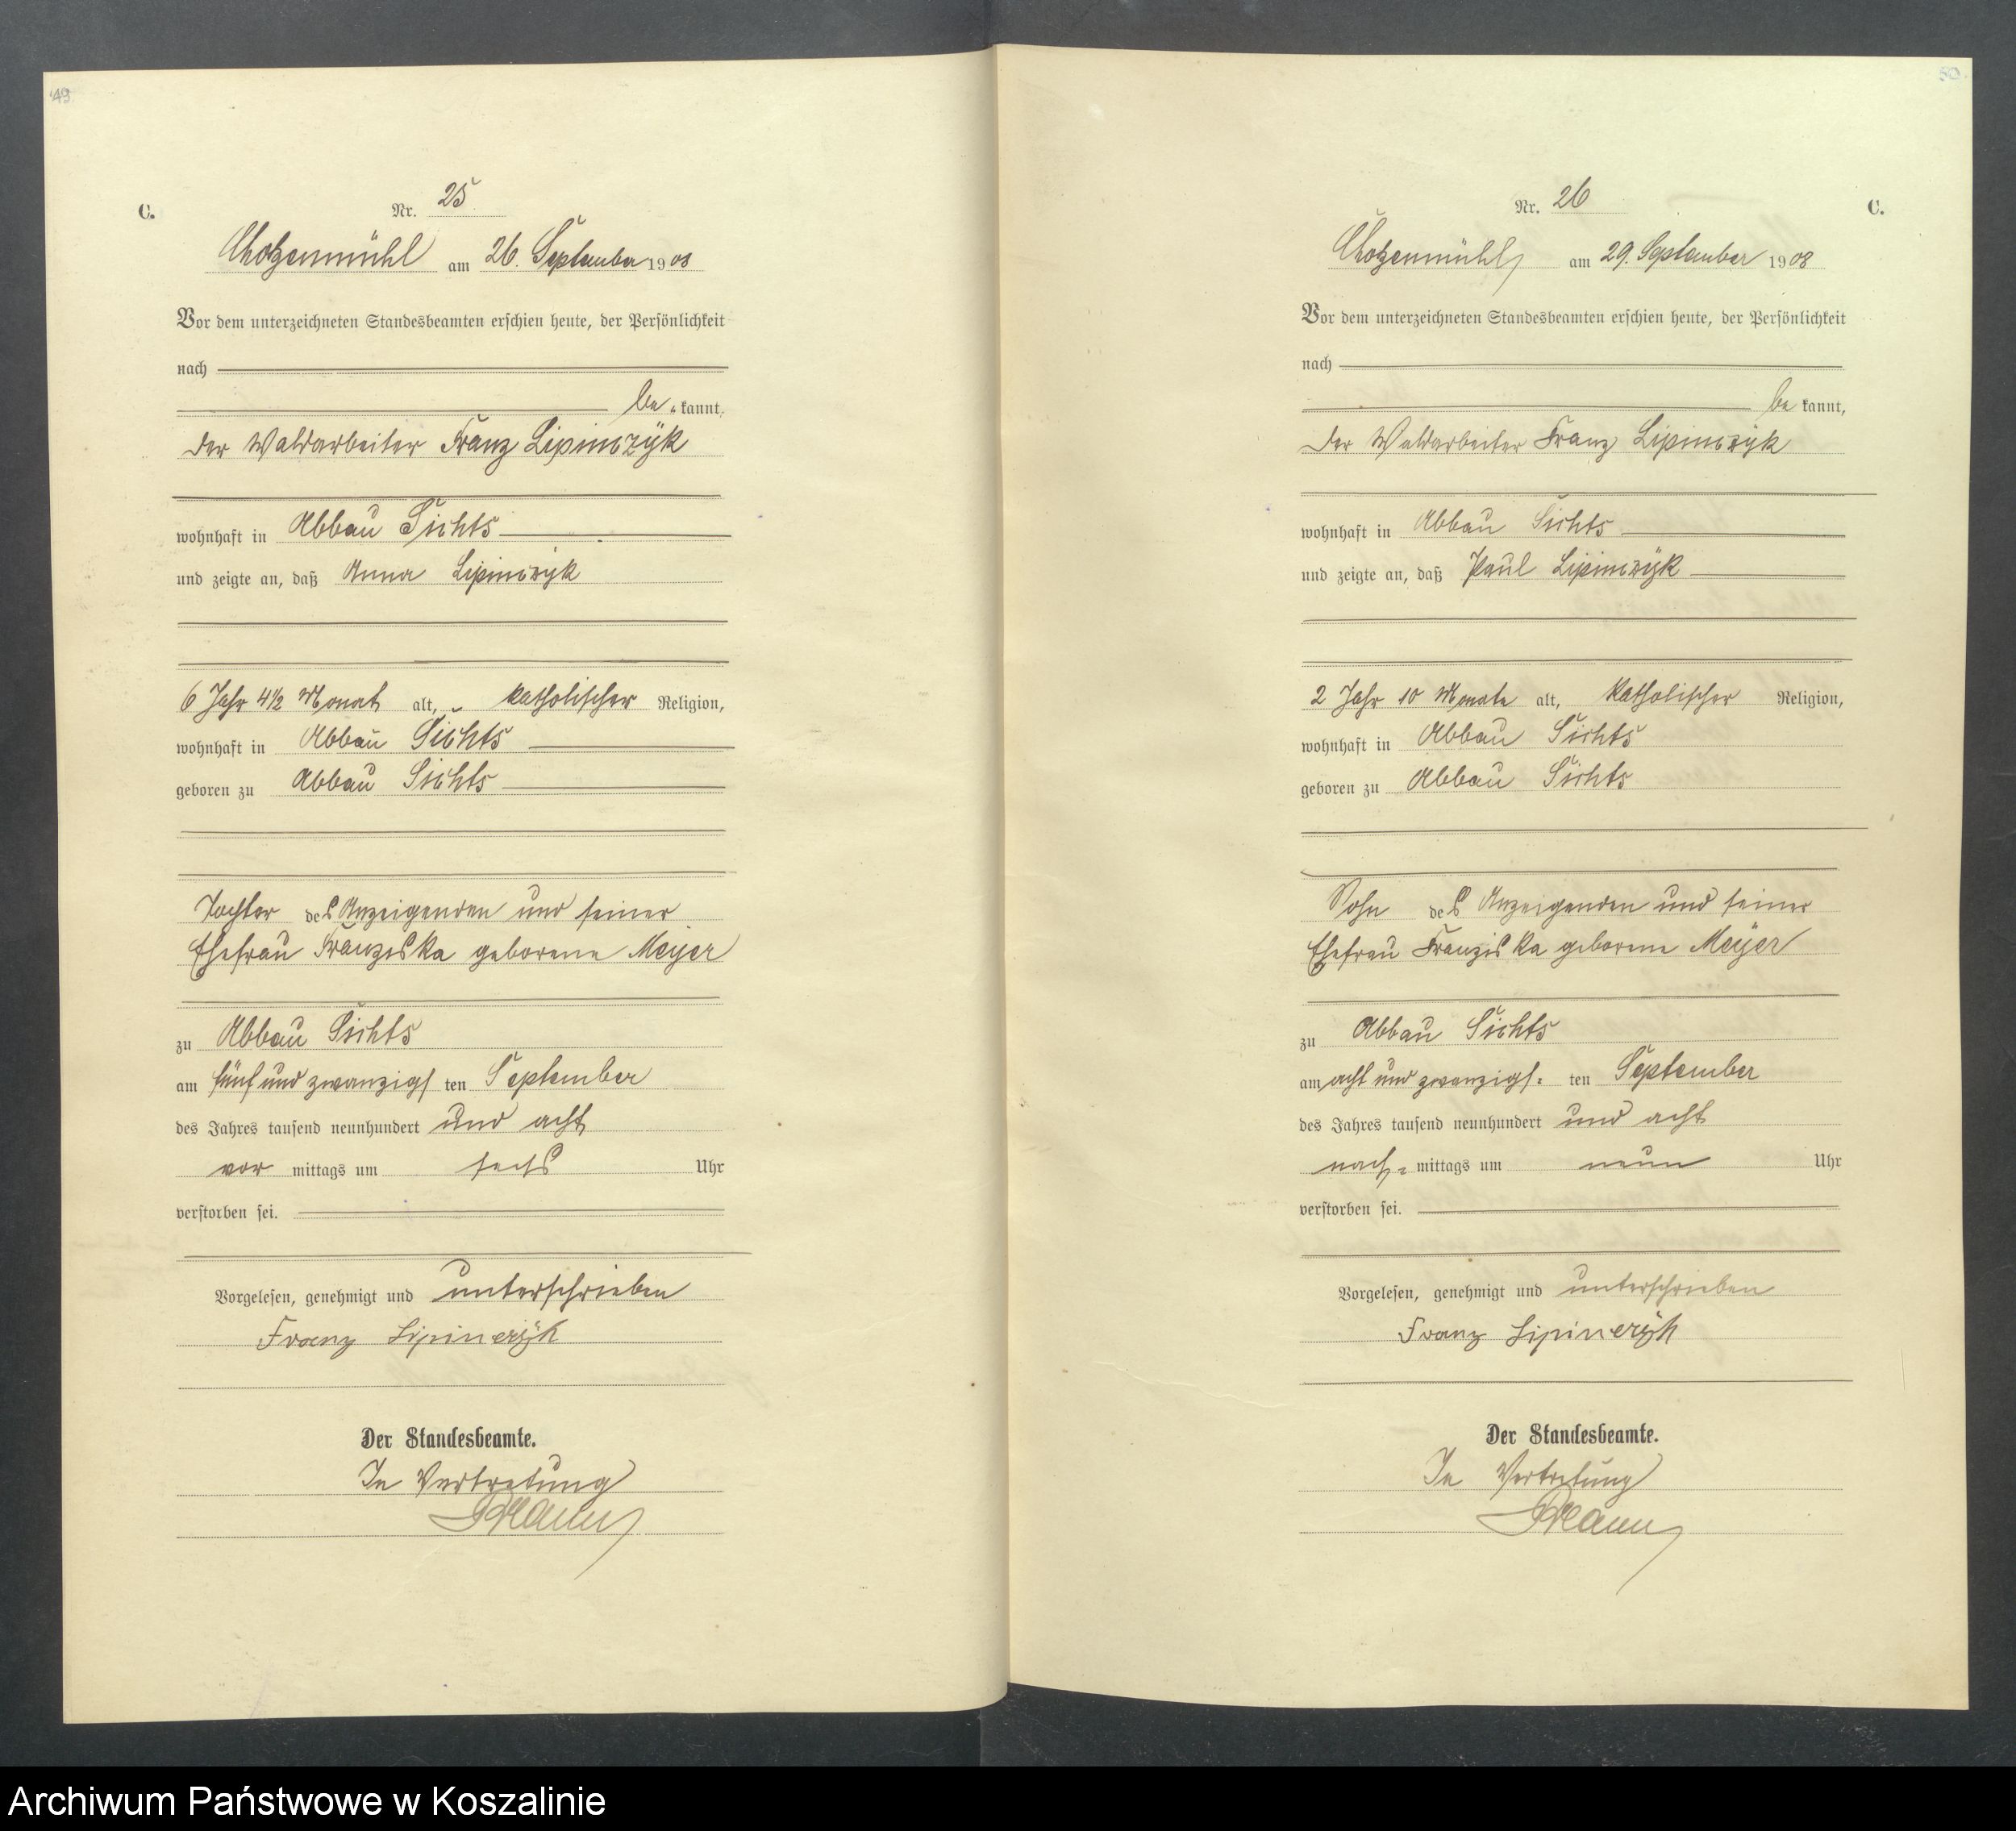 49
C.
Nr. 25
Chotzenmühl am 26. September 1908
Vor dem unterzeichneten Standesbeamten erschien heute, der Persönlichkeit
nach
be kannt,
der Waldarbeiter Franz Lipinczÿk
wohnhaft in Abbau Sichts
und zeigte an, daß Anna Lipinczÿk
6 Jahr 4½ Monat alt, katholischer Religion,
wohnhaft in Abbau Sichts
geboren zu Abbau Sichts
Tochter des Anzeigenden und seiner
Ehefrau Franziska geborene Meÿer
zu Abbau Sichts
am fünf und zwanzigsten September
des Jahres tausend neunhundert und acht
vor mittags um sechs Uhr
verstorben sei.
Vorgelesen, genehmigt und unterschrieben
Franz Lipinczÿk
Der Standesbeamte.
In Vertretung
50
Nr. 26
C.
Chotzenmühl am 29. September 1908
Vor dem unterzeichneten Standesbeamten erschien heute, der Persönlichkeit
nach
be kannt,
der Waldarbeiter Franz Lipinczÿk
wohnhaft in Abbau Sichts
und zeigte an, daß Paul Lipinczÿk
2 Jahr 10 Monate alt, katholischer Religion,
wohnhaft in Abbau Sichts
geboren zu Abbau Sichts
Sohn des Anzeigenden und seiner
Ehefrau Franziska geborene Meÿer
zu Abbau Sichts
am acht und zwanzigs= ten September
des Jahres tausend neunhundert und acht
nach= mittags um neun Uhr
verstorben sei.
Vorgelesen, genehmigt und unterschrieben
Franz Lipinczÿk
Der Standesbeamte.
In Vertretung
Archiwum Państwowe w Koszalinie